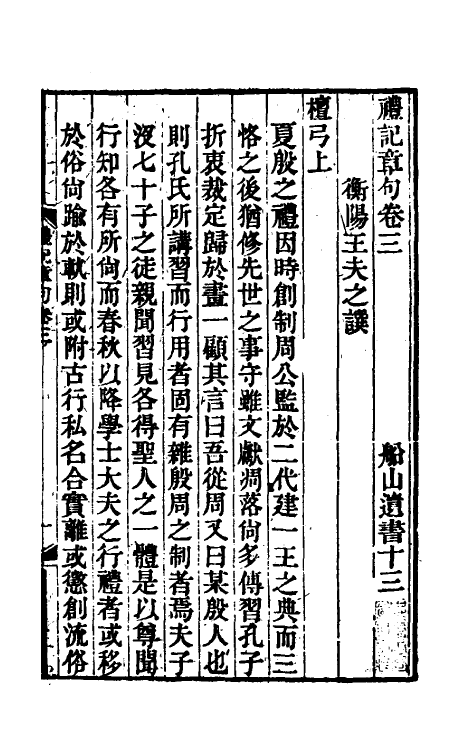 禮記章句卷三　　船山遺書十三
衡陽王夫之譔
檀弓上
夏殷之禮因時創制周公監於二代建一王之典而三
恪之後猶修先世之事守雖文獻凋落尙多傳習孔子
折衷裁定歸於畫一顧其言曰吾從周又曰某殷人也
則孔氏所講習而行用者固有雜殷周之制者焉夫子
沒七十子之徒親聞習見各得聖人之一體是以尊聞
行知各有所尙而春秋以降學士大夫之行禮者或移
於俗尙踰於軌則或附古行私名合實離或懲創流俗
禮記章句卷三